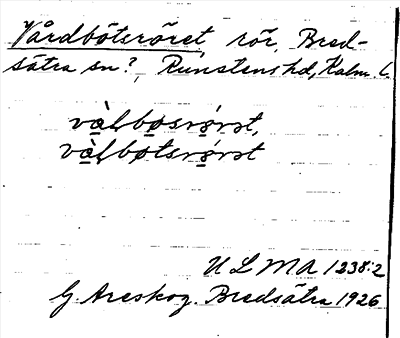 Vårdbötsröret, rör, Bred-
sätra sn?, Runstens hd, Kalm. l.
vàlbøsrǿrət,
vàlbøtsrǿrət
ULMA 1238:2
G. Areskog. Bredsätra 1926